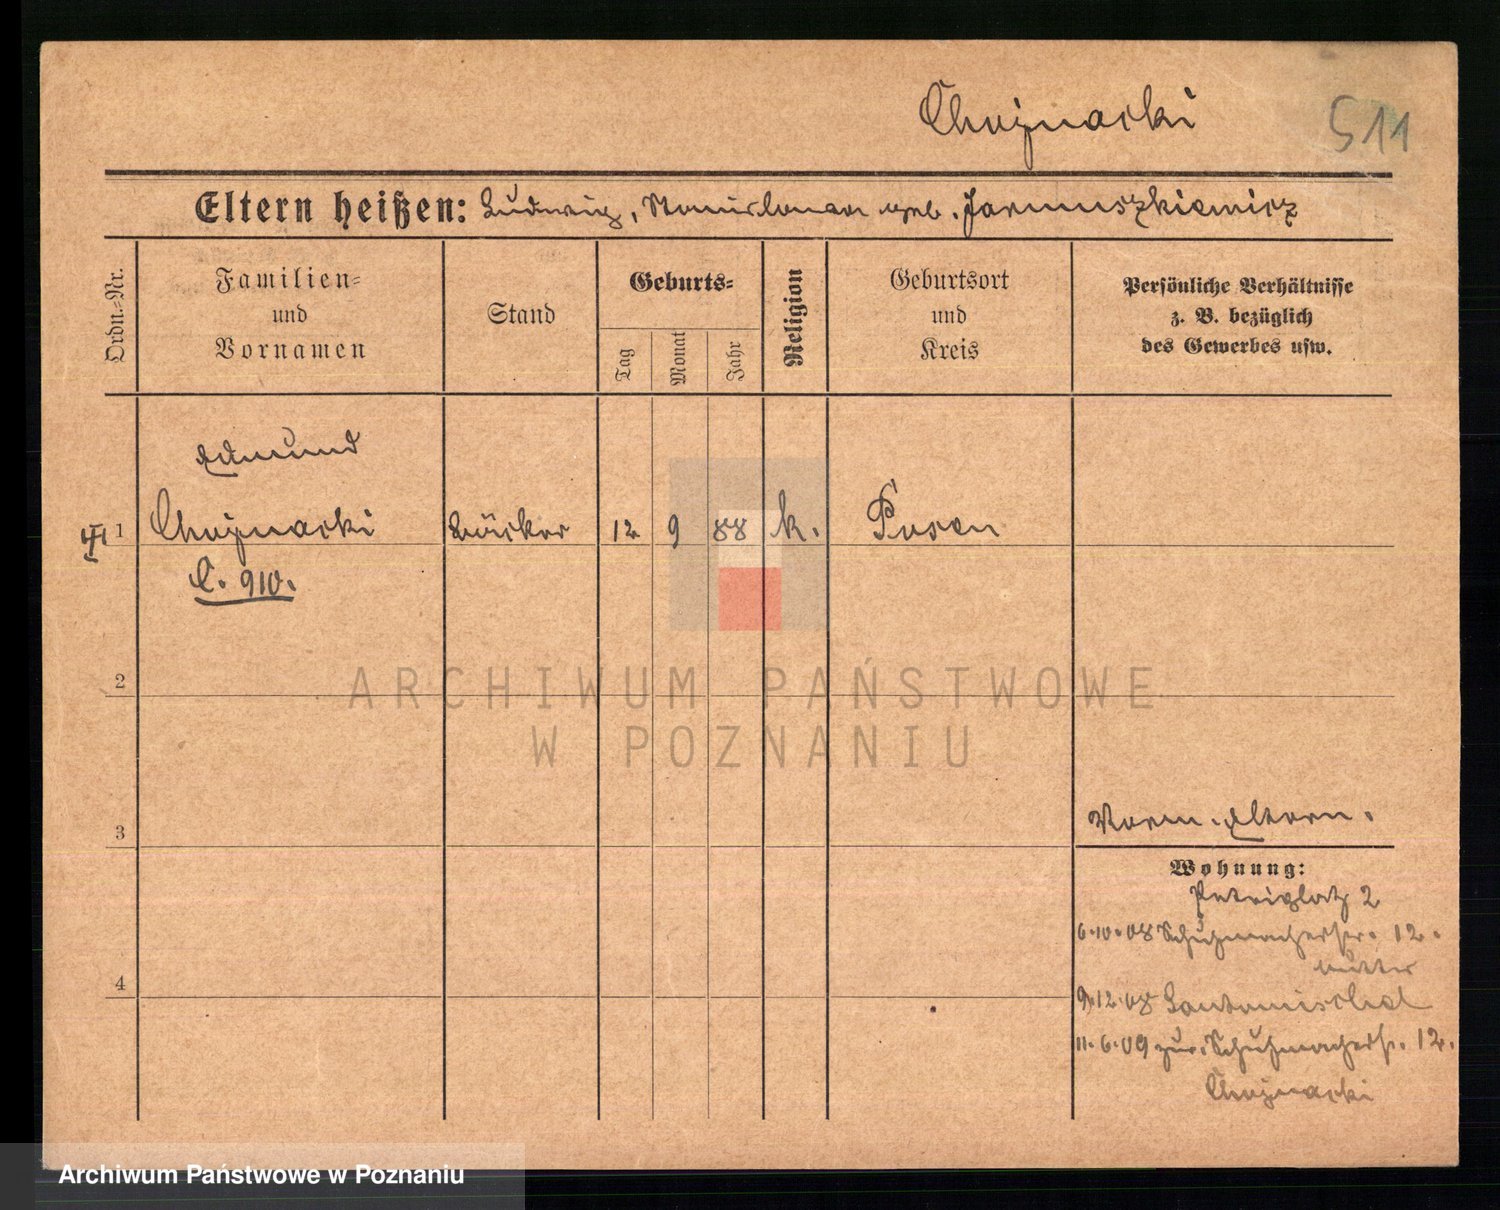 Chojnacki
511
Eltern heißen: Ludwig, Stanislawa geb. Jarmuszkiewicz
Ordn.-Nr.
Familien-
und
Vornamen
Stand
Geburts-
Tag
Monat
Jahr
Religion
Geburtsort
und
Kreis
Persönliche Verhältnisse
z. B. bezüglich
des Gewerbes usw.
Edmund
1 Chojnacki Bäcker 12 9 88 k. Posen
C. 910.
2
ARCHIWUM PAŃSTWOWE
W POZNANIU
3
Eltern.
Wohnung:
Petriplatz 2
6.10.08 Schuhmacherstr. 12.
Mutter
4
9.12.08
11.6.09 zur. Schuhmacherstr. 12.
Chojnacki
Archiwum Państwowe w Poznaniu